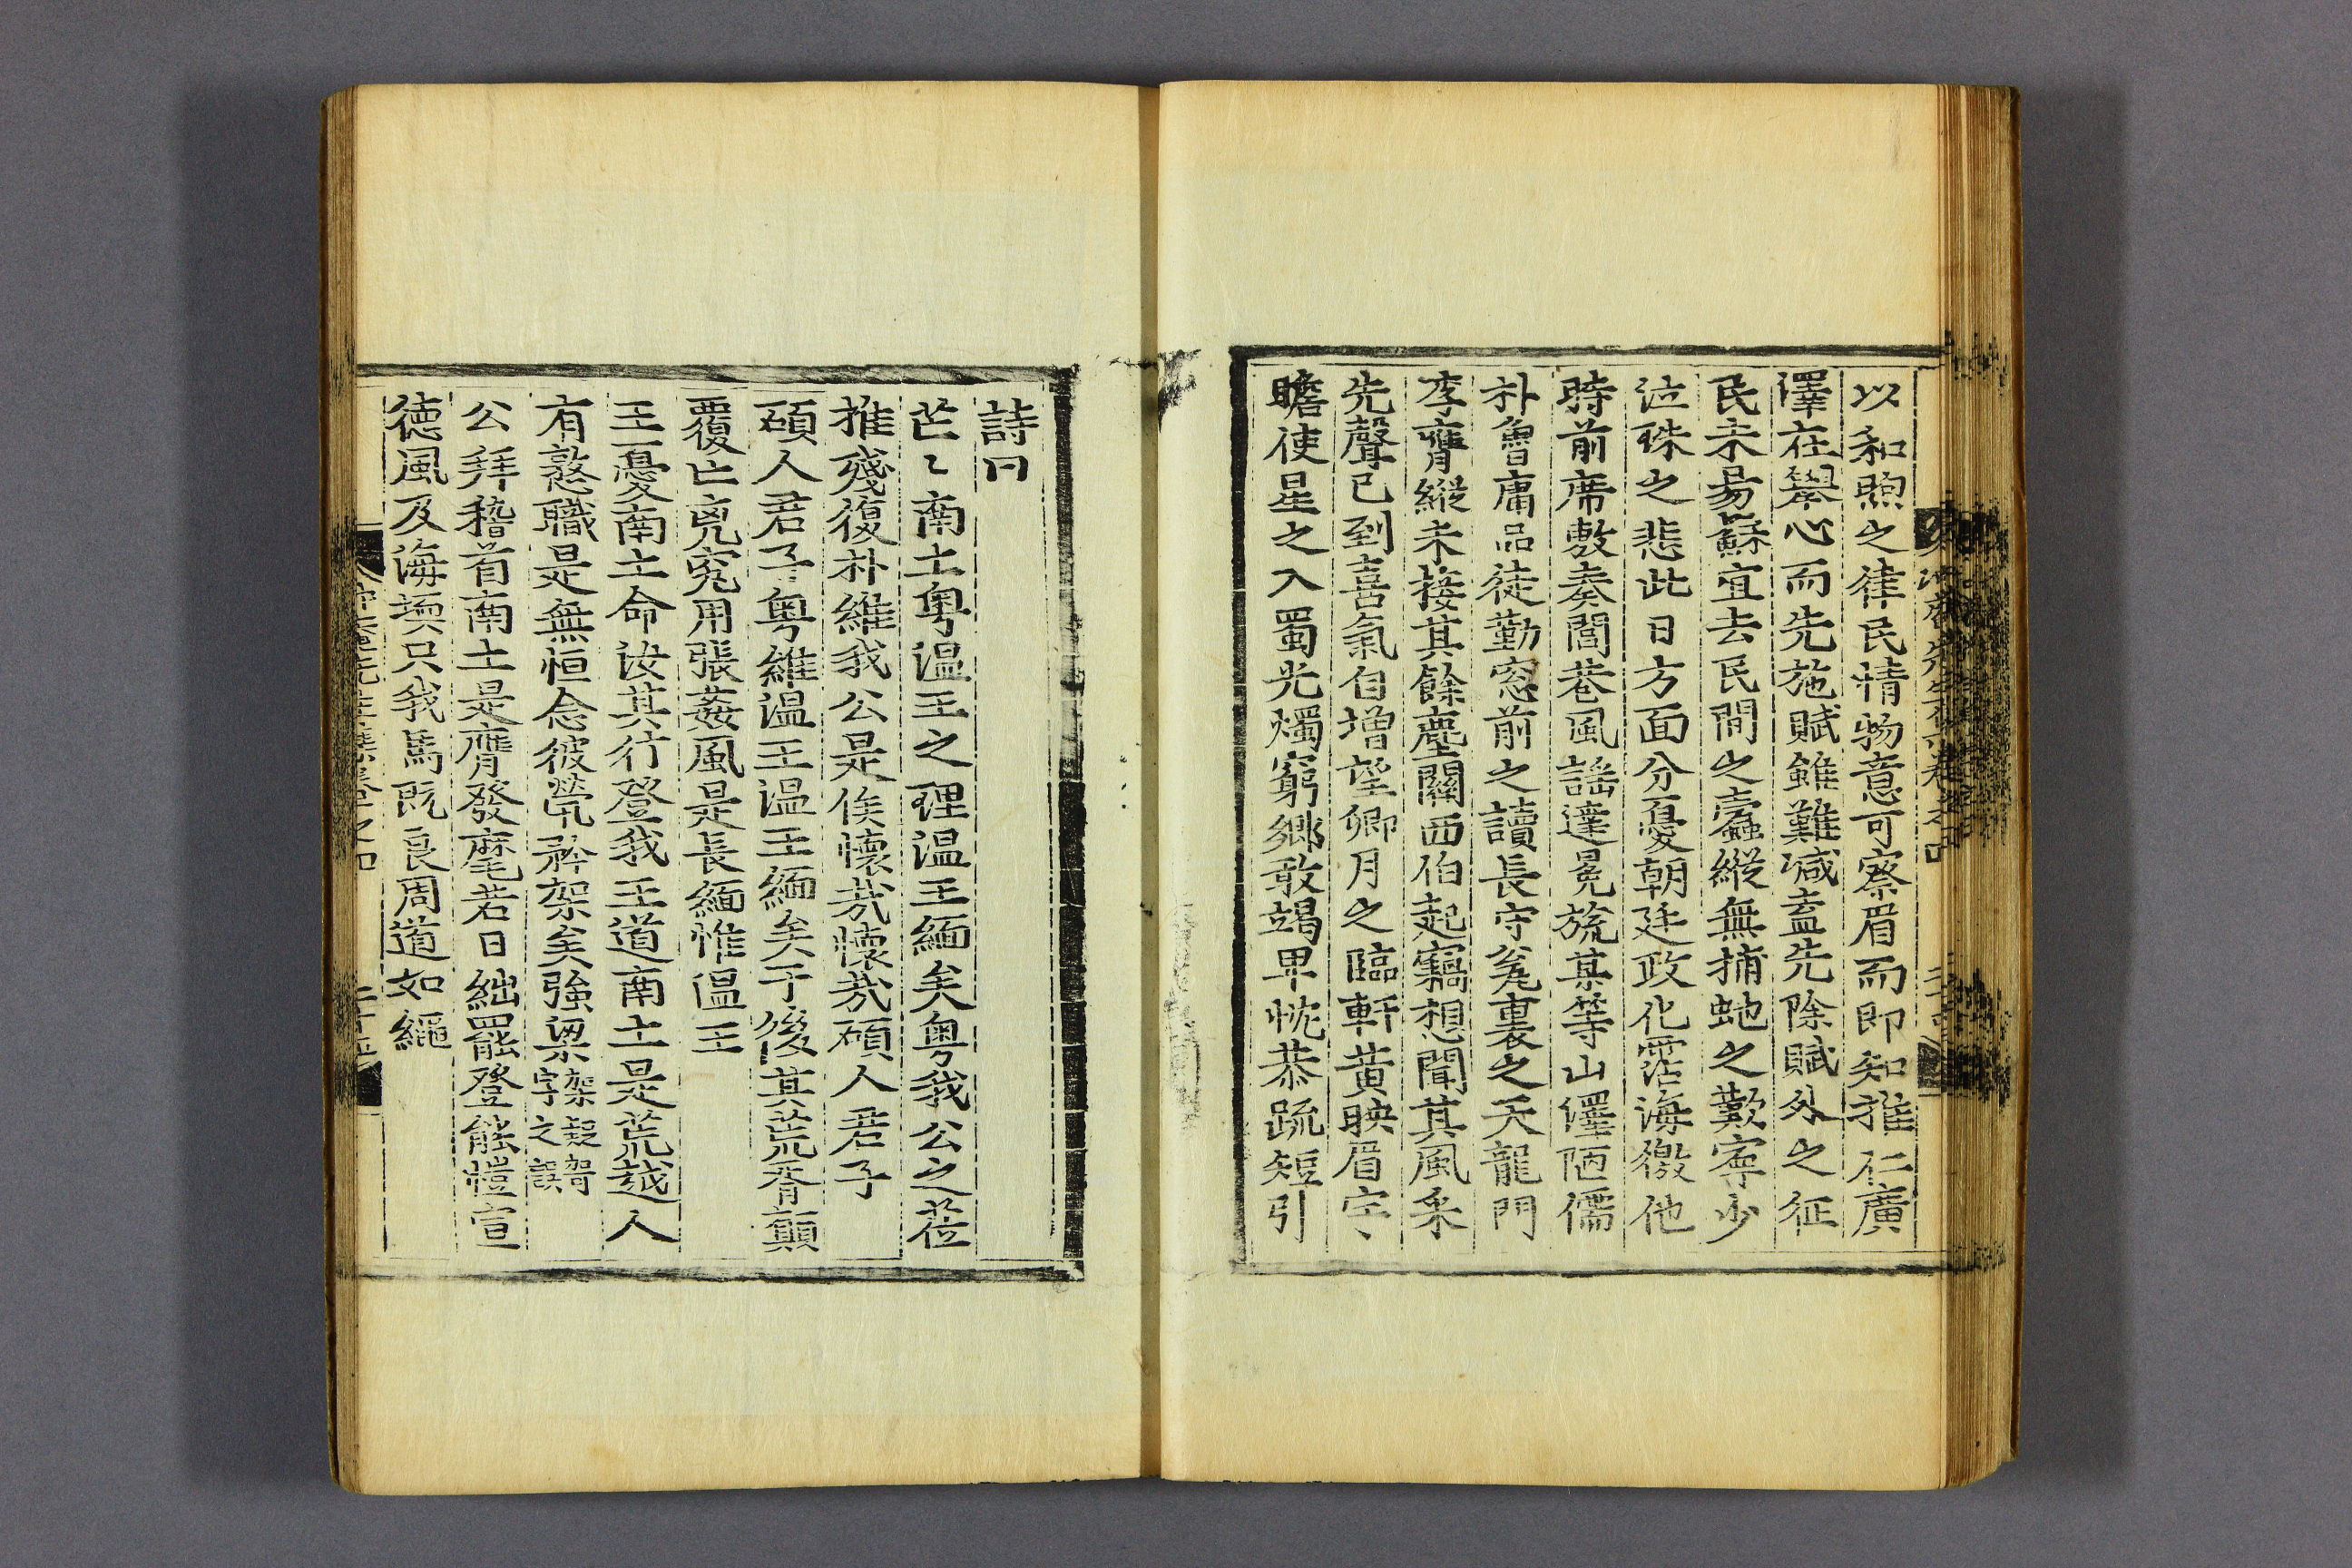 以和煦之律民情物意可察眉而即知推仁廣
澤在擧心而先施賦雖難减盍先除賦外之征
民未易蘇宜去民間之蠹縱無捕虵之歎寧少
泣珠之悲此日方面分憂朝廷政化霑海徼他
時前席敷奏閭巷風謡達冕旒某等山澤陋儒
朴魯庸品徒勤窓前之讀長守瓮裏之天龍門
李膺縱未接其餘塵關西伯起竊想聞其風采
先聲已到喜氣自增望卿月之臨軒黄映眉宇
瞻使星之入蜀光燭窮鄕敢竭卑忱恭疏短引
詩曰
芒〻南土粤温王之理温王緬矣粤我公之莅
推殘復朴維我公是俟懷哉懷哉碩人君子
碩人君子粤維温王温王緬矣于後其荒胥顚
覆亡寇宄用張姦風是長緬惟温王
王憂南土命汝其行登我王道南土是荒越人
有憗職是無恒念彼煢矜架矣強梁架疑駕字之誤
公拜稽首南土是膺發麾若日絀罷登能愷宣
德風及海堧只我馬旣良周道如繩